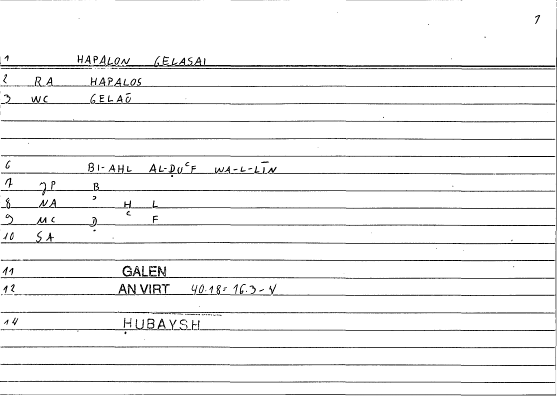 1
1 HAPALON GELASAI
2 RA HAPALOS
3 WC GELAŌ
6 BI-AHL AL-ḌUʿF WA-L-LĪN
7 JP B
8 NA ʾ H L
9 MC Ḍ ʿ F
10 SA
11 GALEN
12 AN VIRT 40.18 = 16.3-4
14 ḤUBAYSH